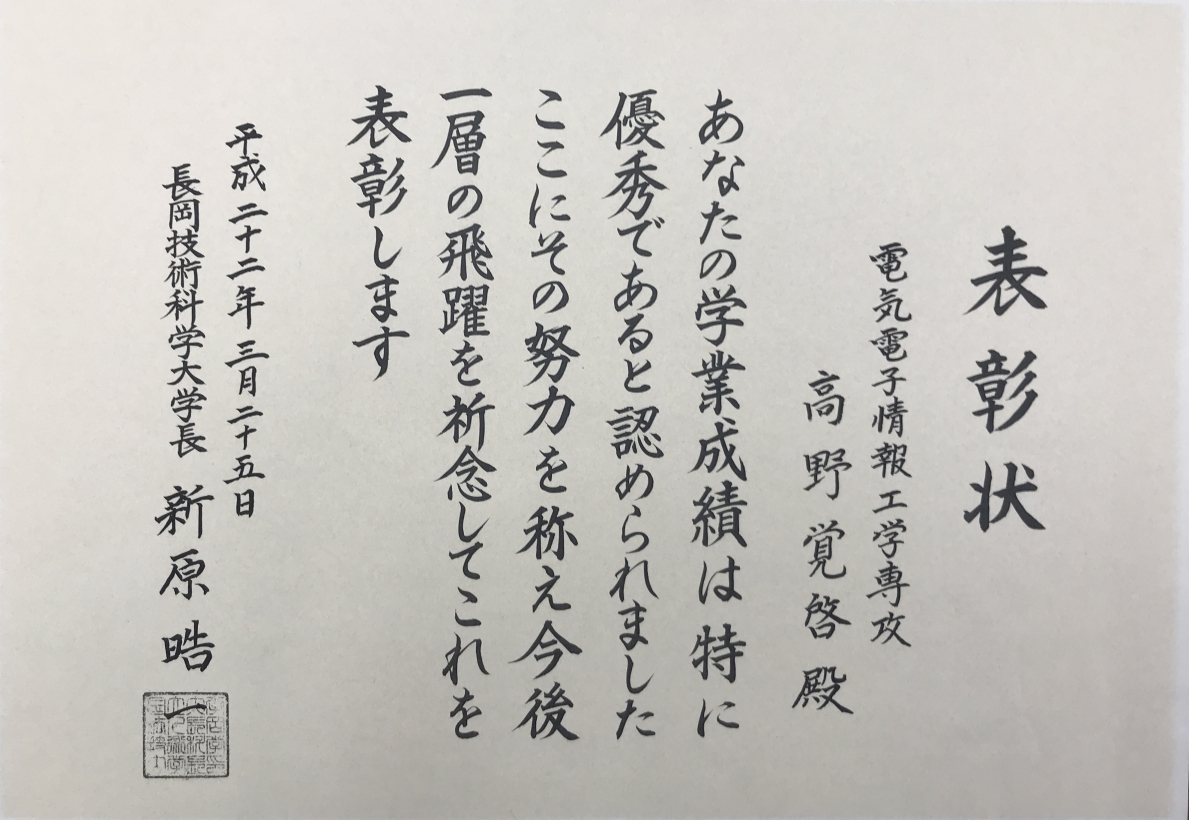 表彰状
電気電子情報工学専攻
高野覚啓殿
あなたの学業成績は特に
優秀であると認められました
ここにその努力を称え今後
一層の飛躍を祈念してこれを
表彰します
平成二十二年三月二十五日
長岡技術科学大学長 新原晧一